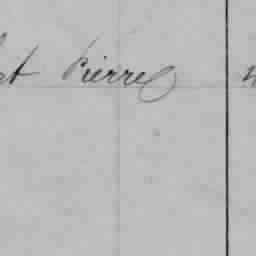 et Pierre